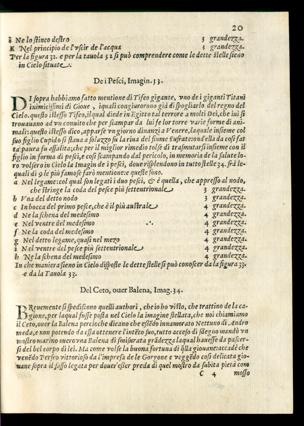 20
ö Ne lo stinco destro 3 grandezza.
E Nel principio de l'vscir de l'acqua 3 grandezza.
Per la figura 32. e per la tauola 32 si può comprendere come le dette stelle siano
in Cielo situate.
De i Pesci, Imagin. 33.
DI sopra habbiamo fatto mentione di Tifeo gigante, vno de i giganti Titani
inimicissimi di Gioue, i quali congiurorono già di spogliarlo del regno del
Cielo. questo istesso Tifeo, il qual diede in Egitto
trouauano ad vn conuito che per scampar da lui fe lor torre varie forme di ani-
mali: questo istesso dico, apparse vn giorno dinanzi a Venere, laquale insieme col
suo figlio Cupido si staua a solazzo
ta paura fu assalita; che per il miglior rimedio tolse di trasmutarsi insieme con il
figlio in forma di pesci, e così scampando dal pericolo, in memoria de la salute lo
ro volsero in Cielo la Imagin de i pesci, doue risplendono in tutto stelle 34. frà le
quali di 9 le più famose farò mentione: e queste sono.
a Nel legame col qual son legati i duo pesci, & è quella, che appresso al nodo,
che stringe la coda del pesce più settentrionale 3 grandezza.
b Vna del detto nodo 3 grandezza.
c In bocca del primo pesce, che è il più australe 4 grandezza.
d Ne la schena del medesimo 4 grandezza.
e Nel ventre del medesimo 4 grandezza.
f Ne la coda del medesimo 4 grandezza.
g Nel detto legame, quasi nel mezo 4 grandezza.
h Nel ventre del pesce più settentrionale 4 grandezza.
h Ne la schena del medesimo 4 grandezza.
In che maniera siano in Cielo disposte le dette stelle si può conoscer da la figura 33.
e da la Tauola 33.
Del Ceto, ouer Balena, Imag. 34.
BReuemente si spediscono quelli authori, che io ho visto, che trattino de la ca-
gione, per laqual fusse posta nel Cielo la imagine stellata, che noi chiamiamo
il Ceto, ouer la Balena percioche dicono che essendo innamorato Nettuno di Andro
meda, e non potendo da essa attenere l'intento suo, tutto acceso di sdegno mandò vn
mostro marino ouero vna Balena di smisurata grãdezza laqual hauesse da pascer-
si del bel corpo di lei. Ma come volse la buona fortuna di quella giouane: accadè che
venẽdo Perseo vittorioso da l'impresa de le Gorgone e veggẽdo così delicata gio-
uane sopra il sasso legata per douer esser preda di quel mostro da subita pietà com
C 4 mosso